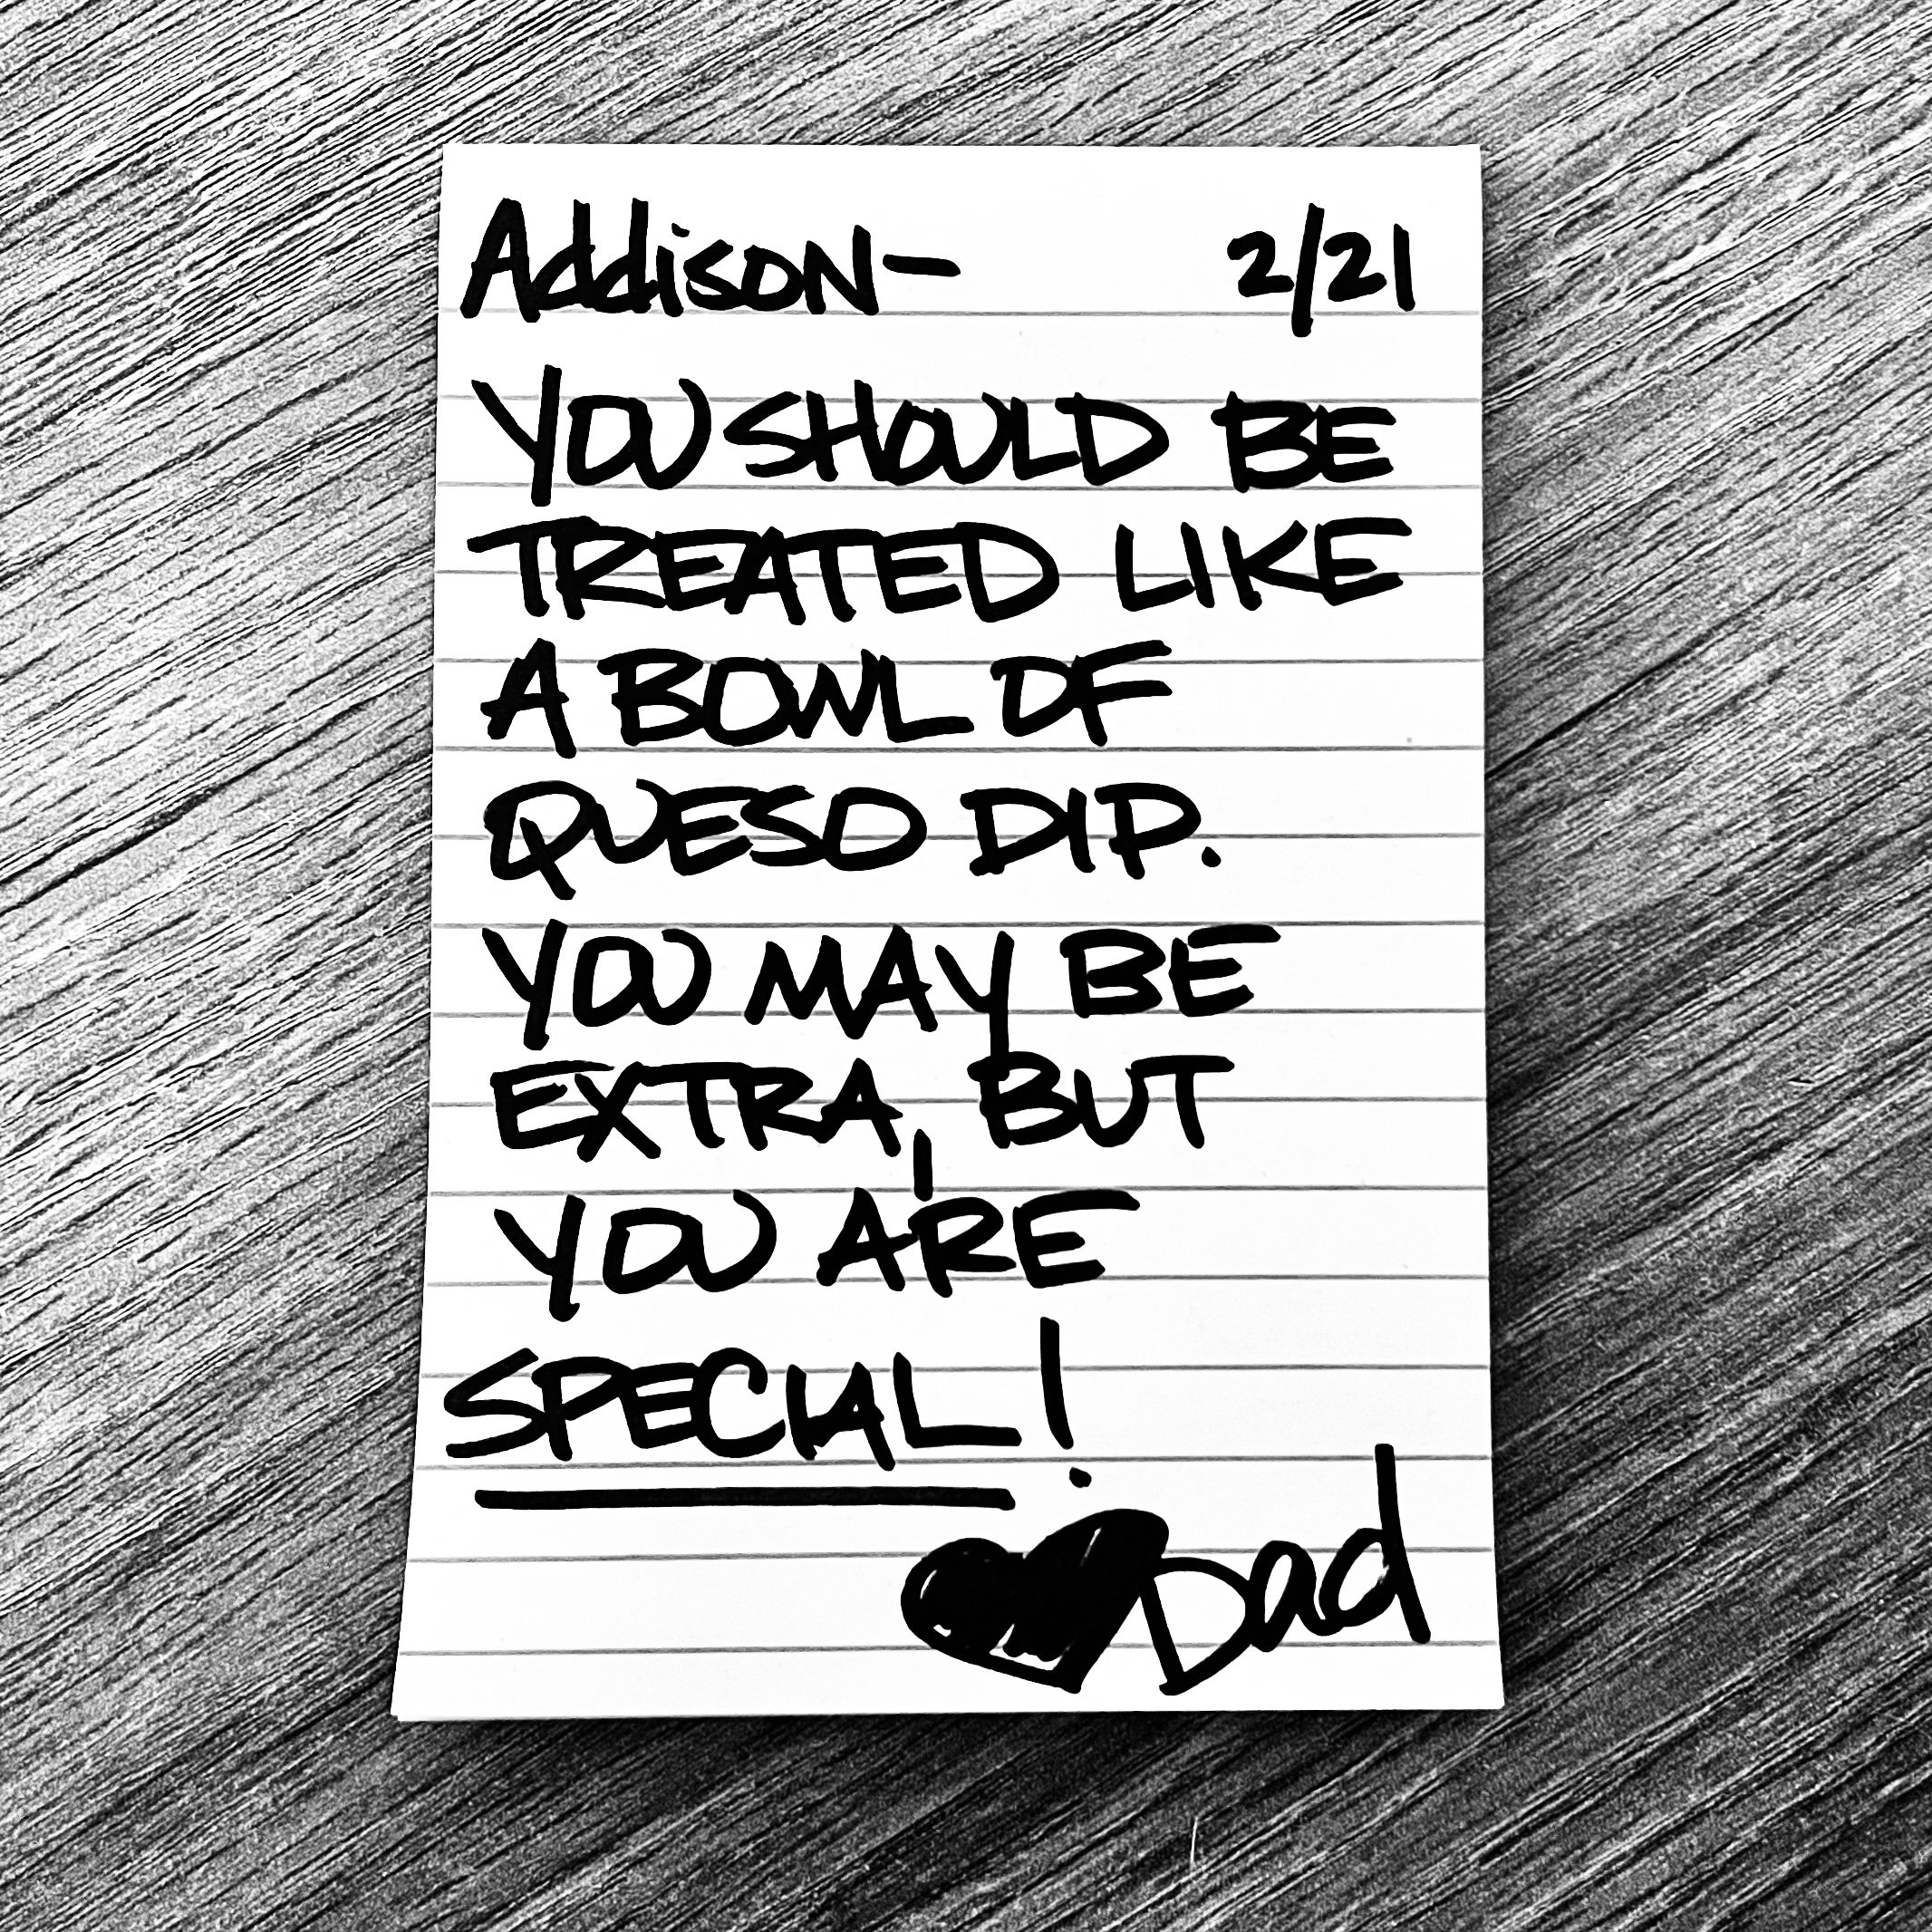 Addison- 2/21
YOU SHOULD BE
TREATED LIKE
A BOWL OF
QUESO DIP.
YOU MAY BE
EXTRA, BUT
YOU ARE
SPECIAL!
Dad